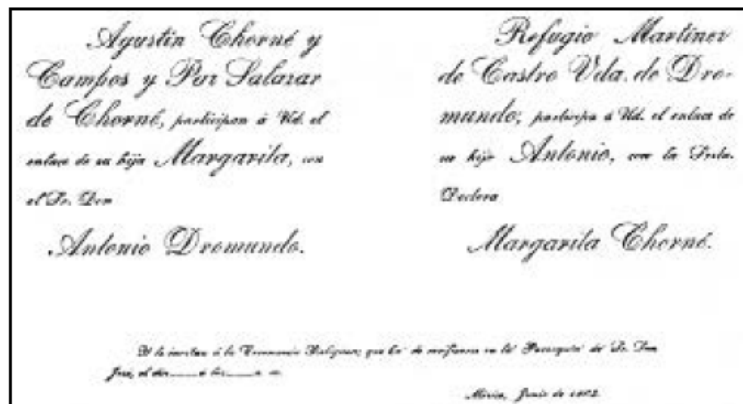 Agustin Chorné y
Campos y Paz Salazar
de Chorné, participan á Ud. el
enlace de su hija Margarita, con
el Sr. Don
Antonio Dromundo.
Refugio Martínez
de Castro Vda. de Dro-
mundo, participa á Ud. el enlace de
su hijo Antonio, con la Srta.
Doctora
Margarita Chorné.
la Ceremonia Religiosa, que ha de verificarse en la Parroquia de Sn.
José, el
México, Junio de